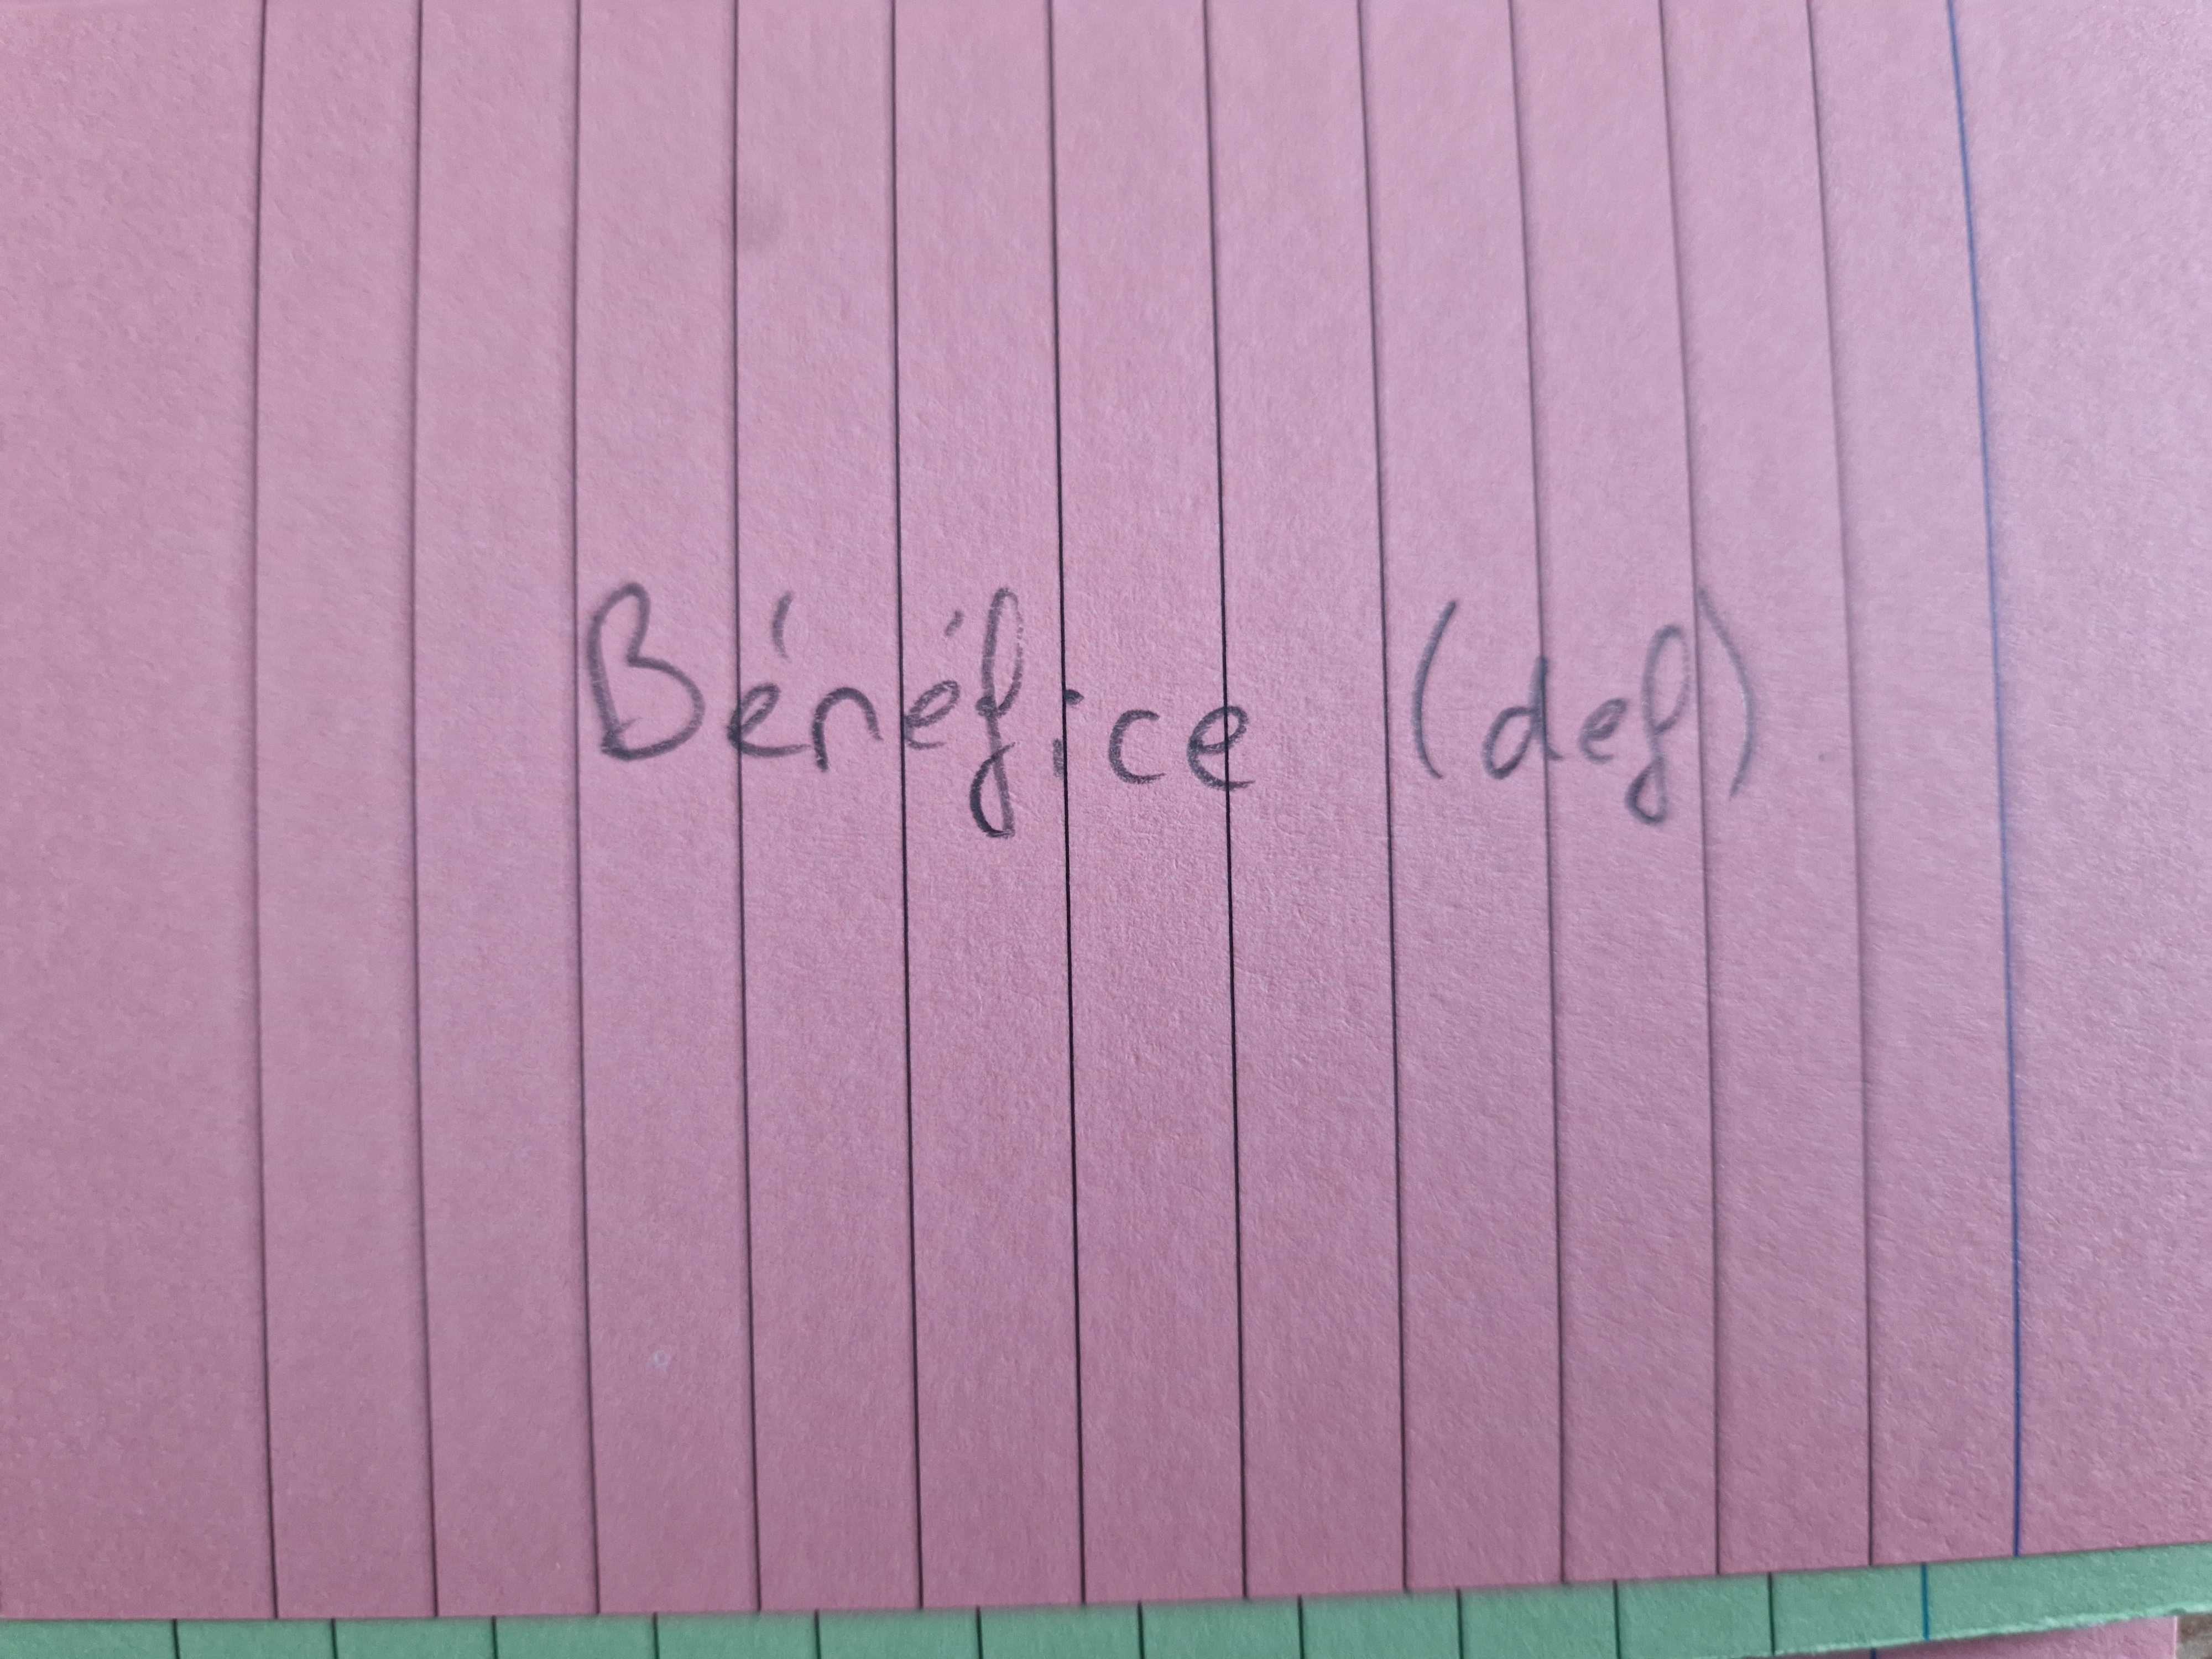 Bénéfice (def)